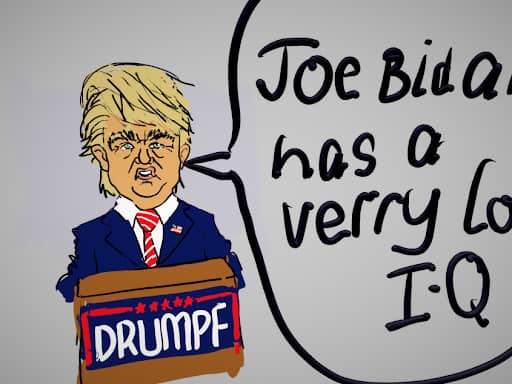 Joe Bidan
has a
verry lo
I-Q
DRUMPF